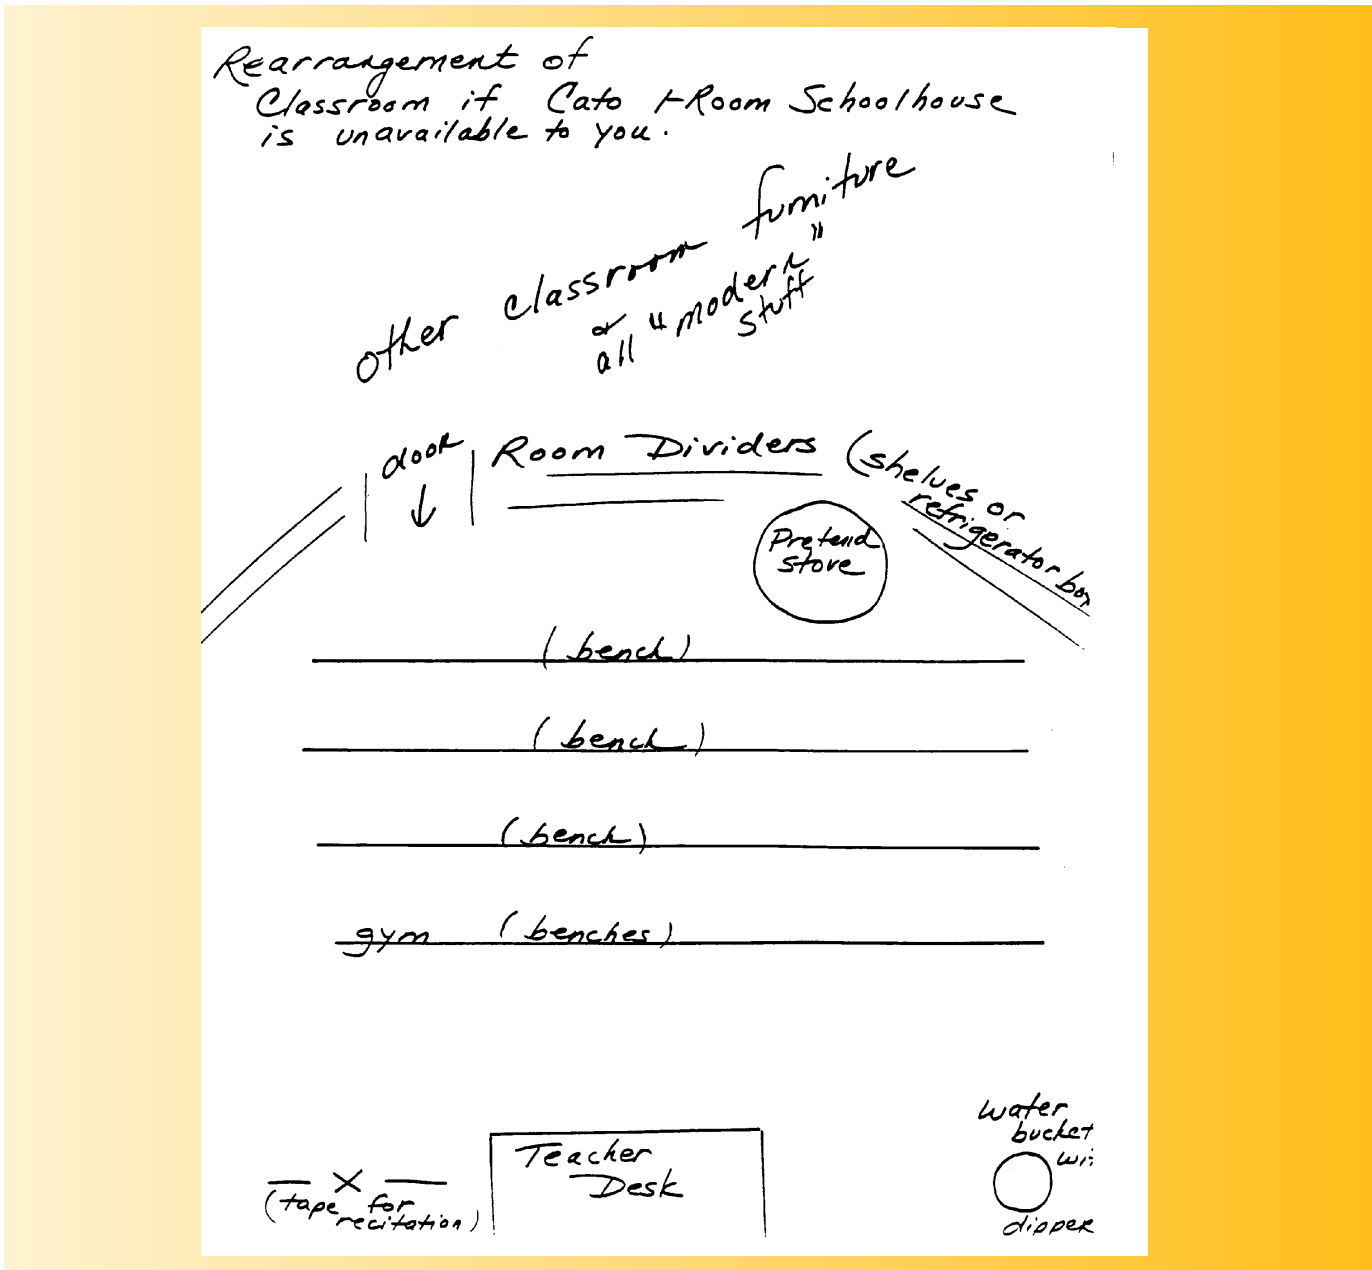 Rearrangement of
Classroom if Cato 1-Room Schoolhouse
is unavailable to you.
other classroom furniture
or
all "modern"
stuff
door
Room Dividers (shelves or
refrigerator box
Pretend
stove
(bench)
(bench)
(bench)
gym (benches)
water
bucket
wi
dipper
Teacher
Desk
X
(tape for
recitation)